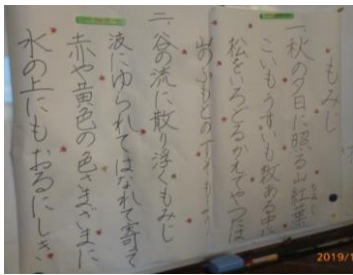 もみじ
一、秋の夕日に照る山紅葉
もみじ
こいもうすいも数ある中に
松をいろどるかえでやつたは
山のふもとの
二、谷の流に散り浮くもみじ
波にゆられてはなれて寄って
赤や黄色の色さまざまに
水の上にもおるにしき
2019/1